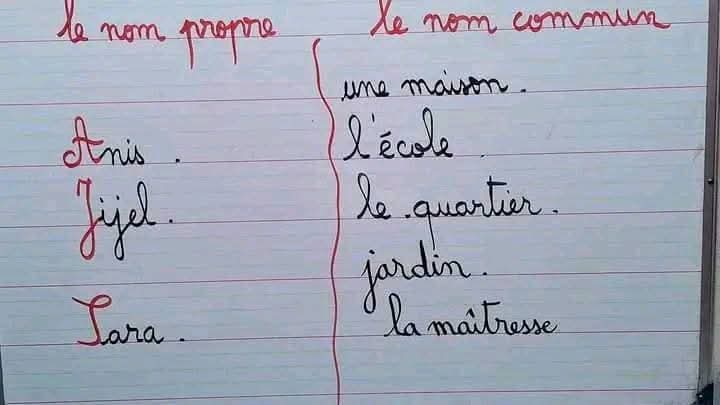 le nom propre
le nom commun
une maison.
Anis.
l'école.
Jijel.
le quartier.
jardin.
Sara.
la maîtresse